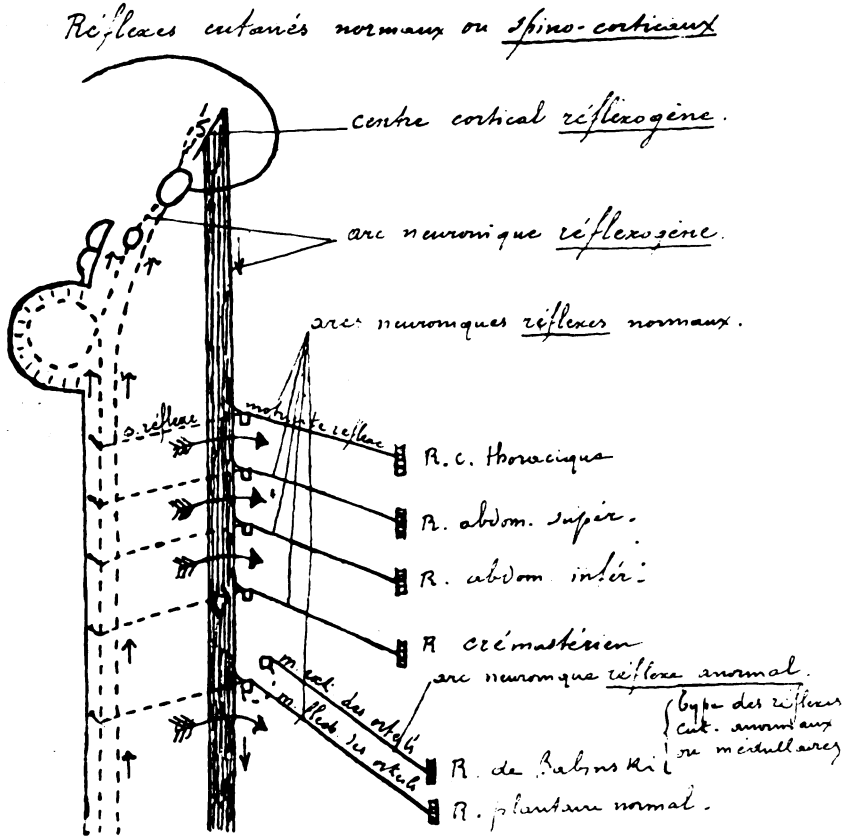 Réflexes cutanés normaux ou spino-corticaux
centre cortical réflexogène.
arc neuronique réflexogène.
arcs neuroniques réflexes normaux.
s. réflexe
motricité réflexe
R. c. thoracique
R. abdom. supér.
R. abdom. infér.
R crémastérien
arc neuronique réflexe anormal.
m. ext. des orteils
m. flech. des orteils
type des réflexes
cut. anormaux
ou médullaires
R. de Babinski
R. plantaire normal.